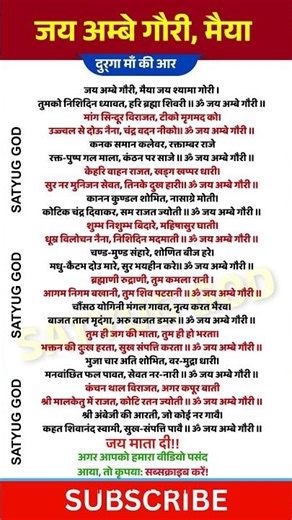 जय अम्बे गौरी, मैया
दुर्गा माँ की आर
जय अम्बे गौरी, मैया जय श्यामा गोरी ।
तुमको निशिदिन ध्यावत, हरि ब्रह्मा शिवरी ॥ ॐ जय अम्बे गौरी ॥
मांग सिन्दूर विराजत, टीको मृगमद को।
उज्ज्वल से दोऊ नैना, चंद्र वदन नीको॥ ॐ जय अम्बे गौरी ॥
कनक समान कलेवर, रक्ताम्बर राजे
रक्त-पुष्प गल माला, कंठन पर साजे ॥ ॐ जय अम्बे गौरी ॥
केहरि वाहन राजत, खड्ग खप्पर धारी।
सुर नर मुनिजन सेवत, तिनके दुख हारी॥ ॐ जय अम्बे गौरी ॥
कानन कुण्डल शोभित, नासाग्रे मोती।
कोटिक चंद्र दिवाकर, सम राजत ज्योती ॥ ॐ जय अम्बे गौरी ॥
शुम्भ निशुम्भ बिदारे, महिषासुर घाती।
धूम्र विलोचन नैना, निशिदिन मदमाती ॥ ॐ जय अम्बे गौरी ॥
चण्ड-मुण्ड संहारे, शोणित बीज हरे।
मधु-कैटभ दोउ मारे, सुर भयहीन करे॥ ॐ जय अम्बे गौरी ॥
ब्रह्माणी रुद्राणी, तुम कमला रानी।
आगम निगम बखानी, तुम शिव पटरानी ॥ ॐ जय अम्बे गौरी ॥
चौंसठ योगिनी मंगल गावत, नृत्य करत भैरव।
बाजत ताल मृदंगा, अरु बाजत डमरू ॥ ॐ जय अम्बे गौरी ॥
तुम ही जग की माता, तुम ही हो भरता।
भक्तन की दुःख हरता, सुख संपत्ति करता ॥ ॐ जय अम्बे गौरी ॥
भुजा चार अति शोभित, वर-मुद्रा धारी।
मनवांछित फल पावत, सेवत नर-नारी ॥ ॐ जय अम्बे गौरी ॥
कंचन थाल विराजत, अगर कपूर बाती
श्री मालकेतु में राजत, कोटि रतन ज्योती ॥ ॐ जय अम्बे गौरी ॥
श्री अंबेजी की आरती, जो कोई नर गावै।
कहत शिवानंद स्वामी, सुख-संपत्ति पावै ॥ ॐ जय अम्बे गौरी ॥
जय माता दी!!
अगर आपको हमारा वीडियो पसंद
आया, तो कृपया: सब्सक्राइब करें!
SUBSCRIBE
SATYUG GOD
SATYUG GOD
SATYUG GOD
SATYUG GOD